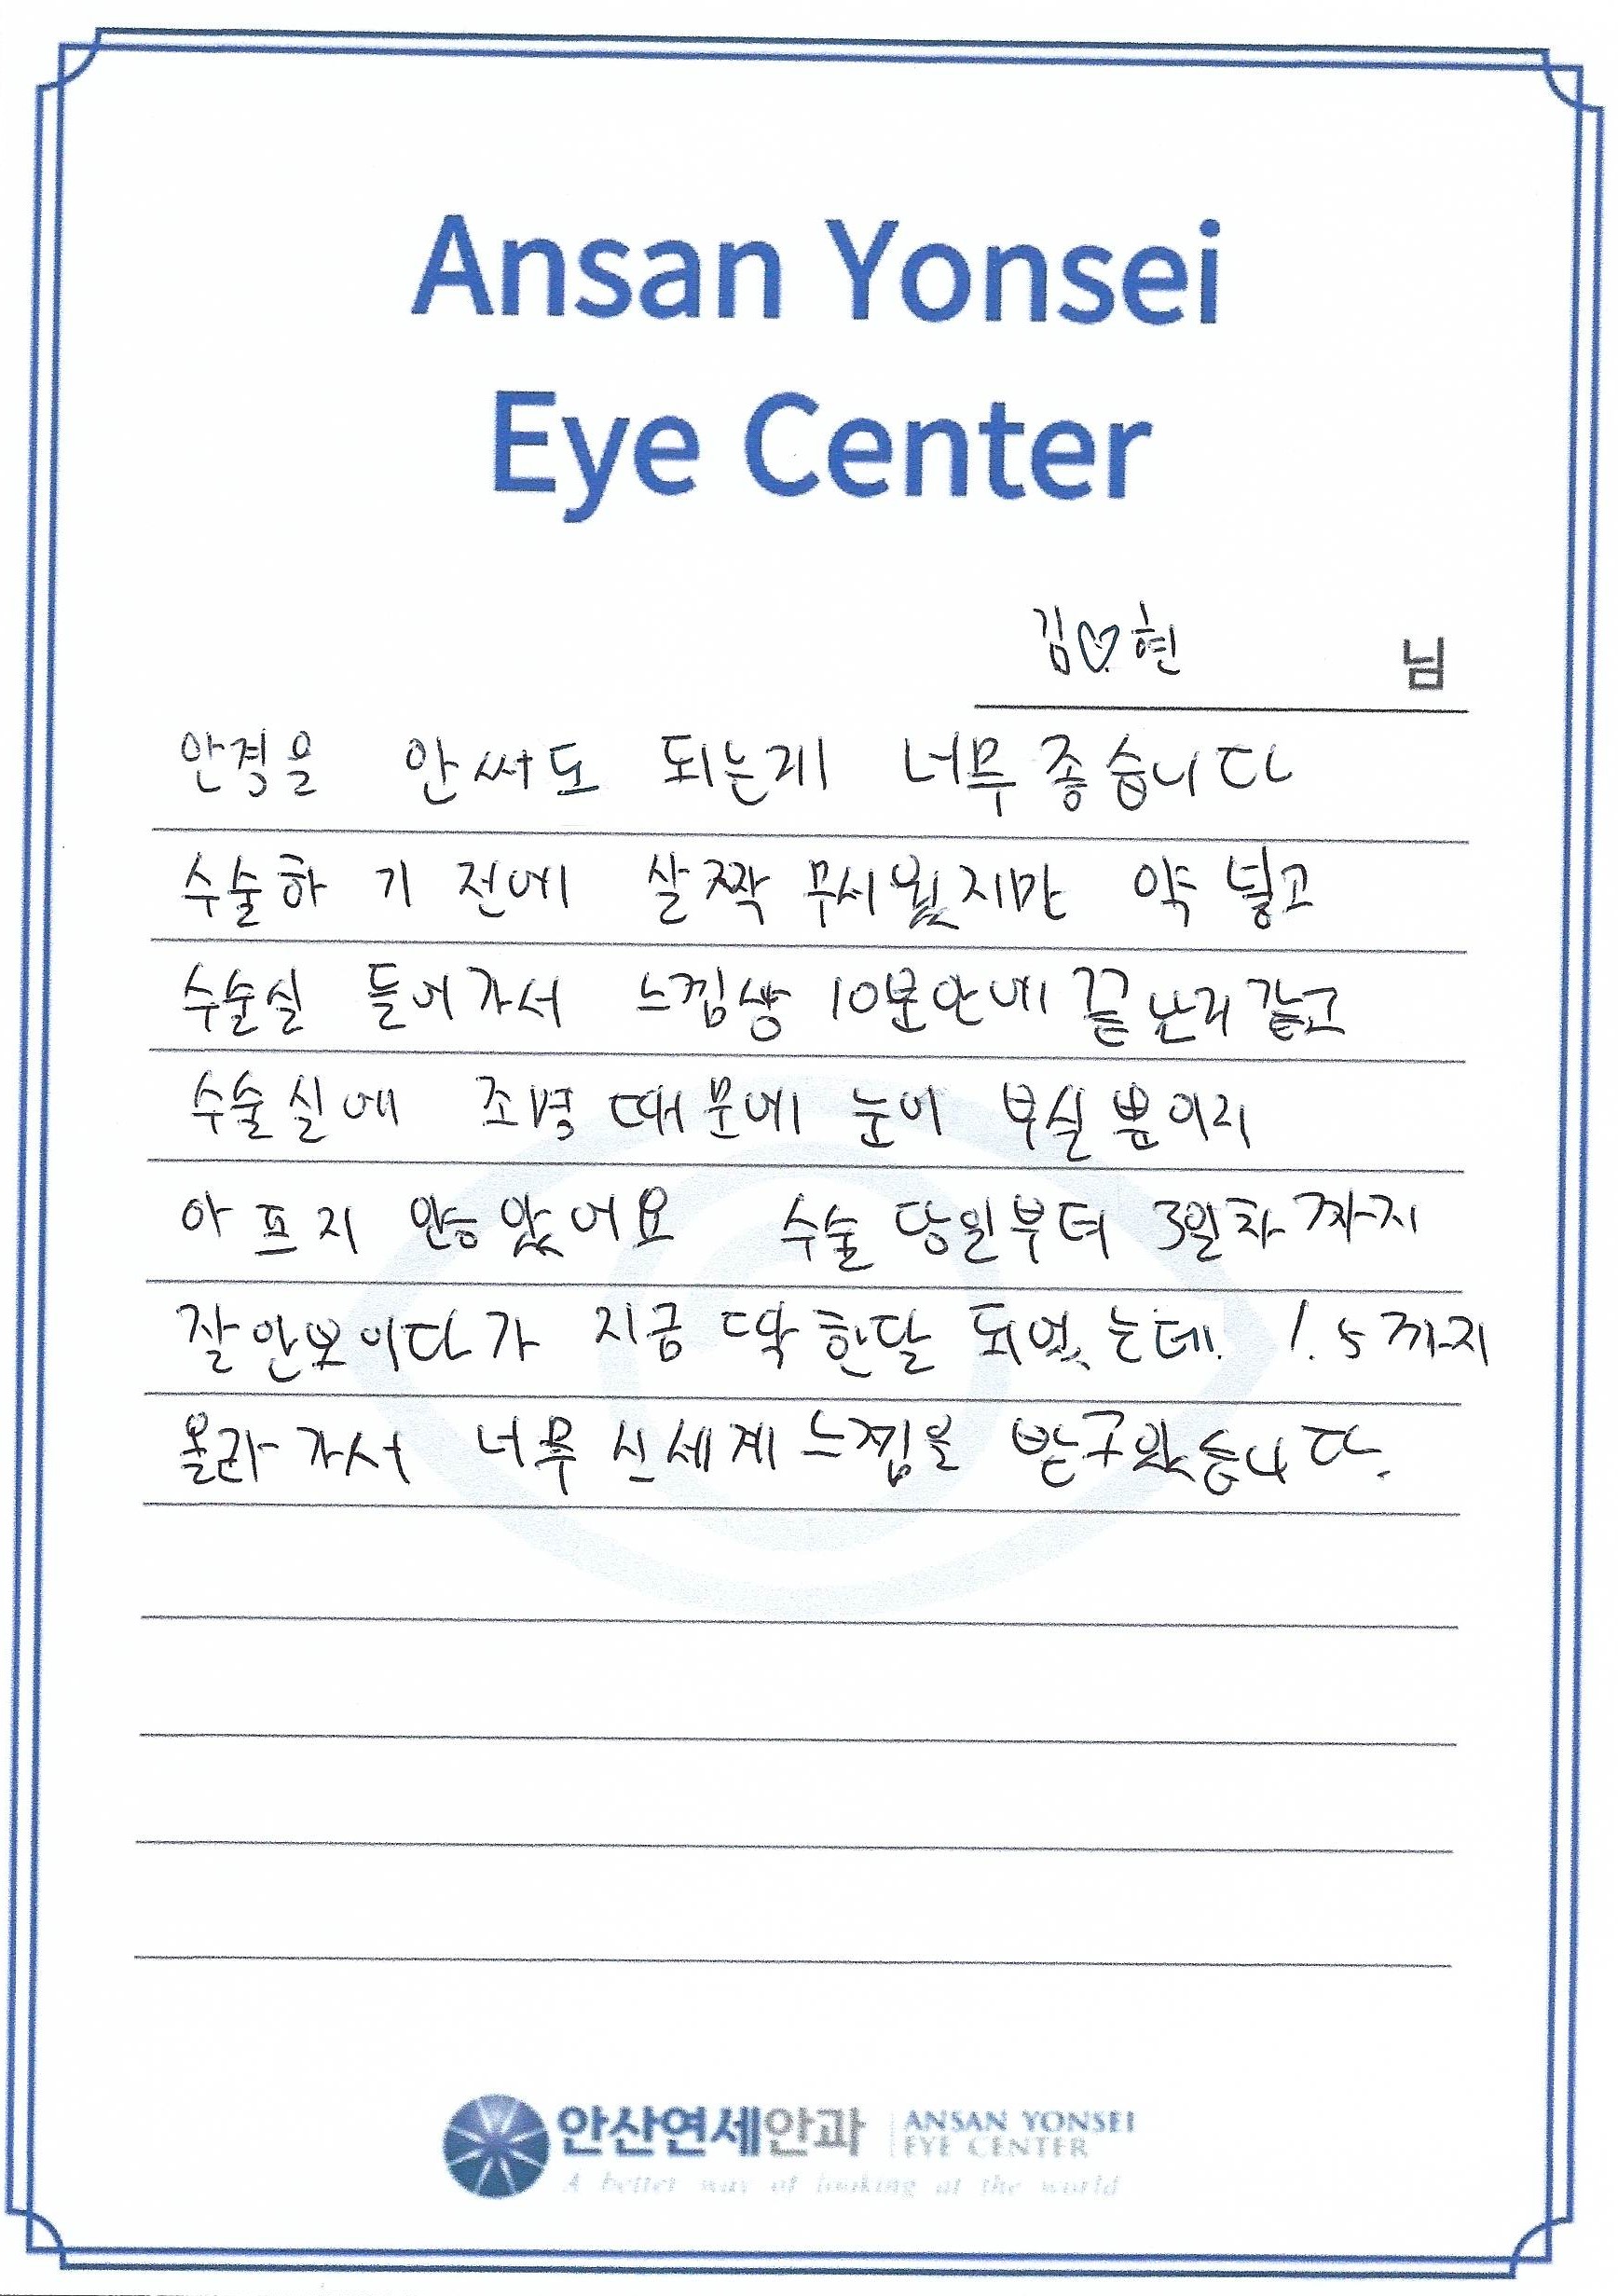 Ansan Yonsei
Eye Center
김♡현 님
안경을 안써도 되는게 너무 좋습니다
수술하기 전에 살짝 무서웠지만 약 넣고
수술실 들어가서 느낌상 10분안에 끝난거 같고
수술실에 조명 때문에 눈이 부실 뿐이지
아프지 않았어요 수술 당일부터 3일차까지
잘안보이다가 지금 딱 한달 되었는데. 1.5까지
올라가서 너무 신세계 느낌을 받구있습니다.
안산연세안과 ANSAN YONSEI
EYE CENTER
A better way of looking at the world